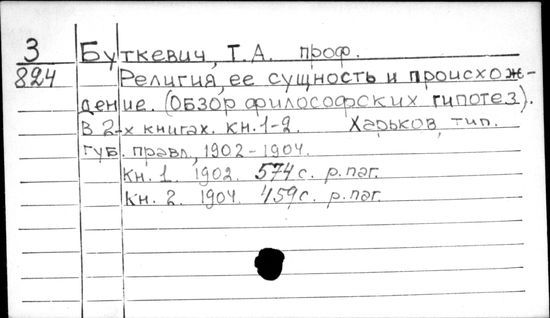 3 Буткевич, Т.А. проф.
824 Религия, ее сущность и происхож-
дение. (Обзор философских гипотез).
В 2-х книгах. Кн.1-2. Харьков, тип.
губ. правл, 1902-1904.
Кн. 1. 1902. 574 с. р.паг.
Кн. 2. 1904. 459 с. р.паг.